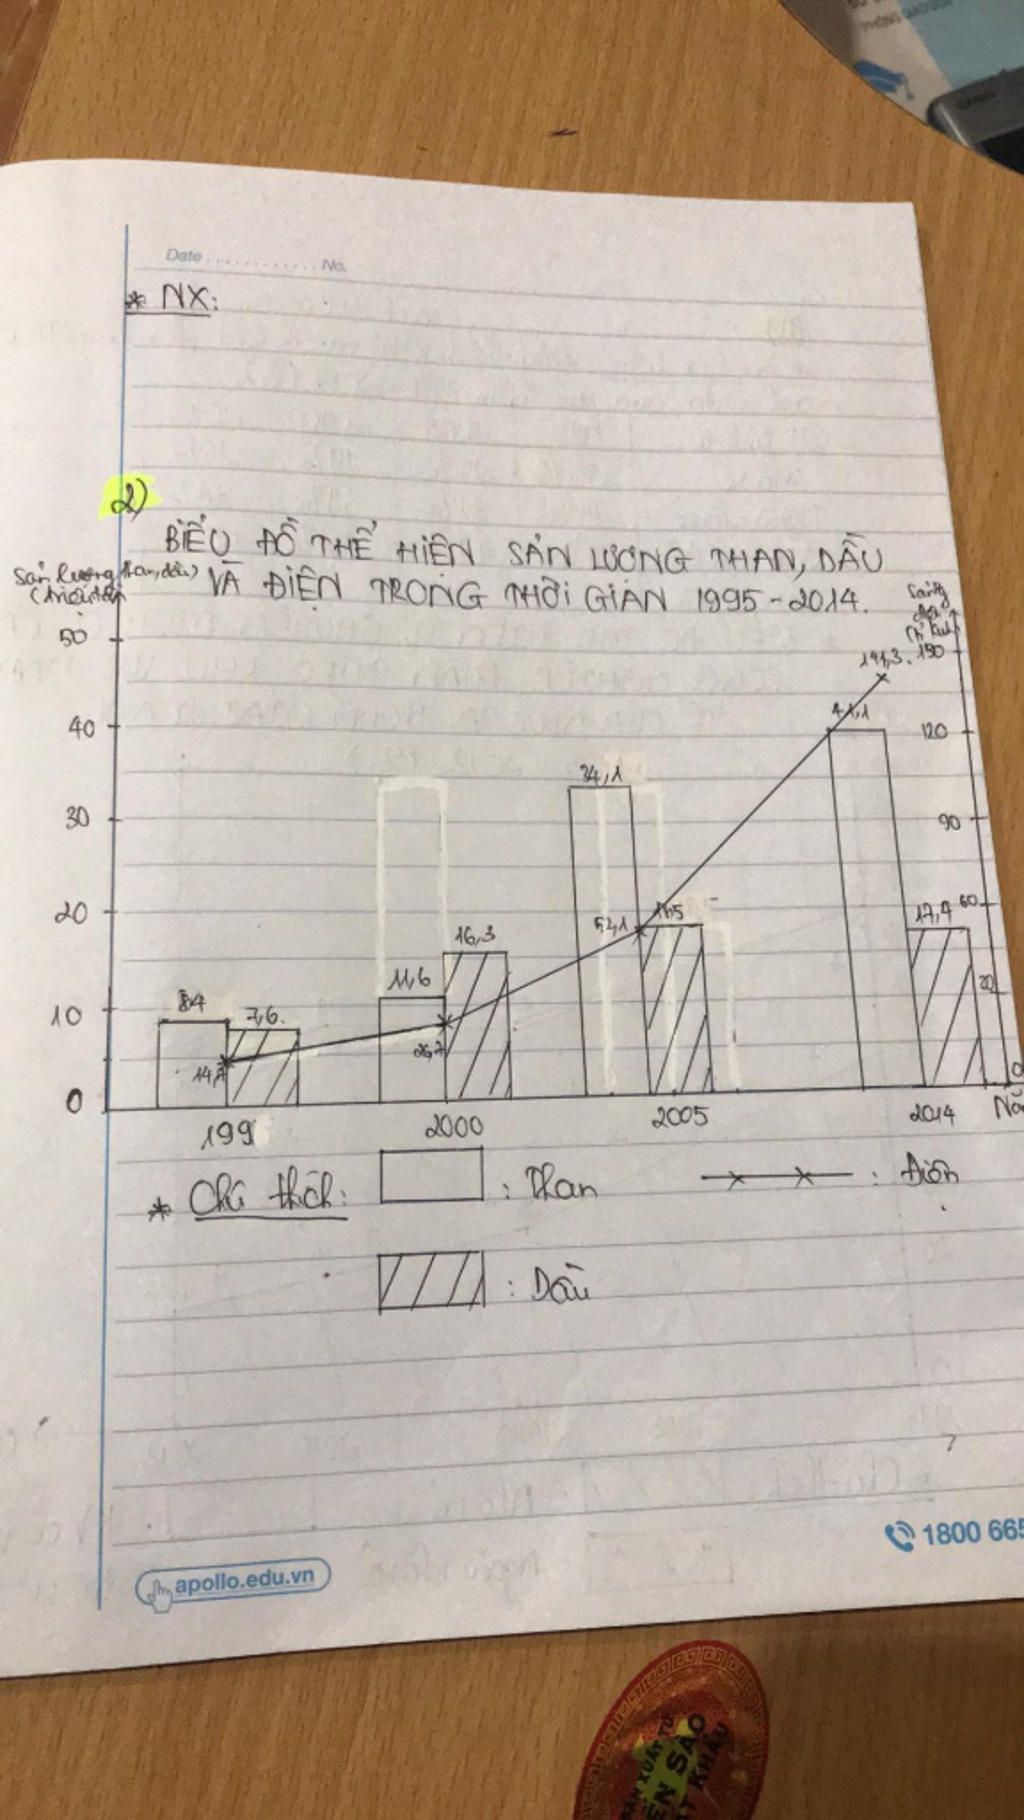 Date ............ No.
* NX:
2)
BIỂU ĐỒ THỂ HIỆN SẢN LƯỢNG THAN, DẦU
VÀ ĐIỆN TRONG THỜI GIAN 1995-2014.
Sản lượng than, dầu)
(triệu tấn
50
40
30
20
10
0
150
120
90
60
0
8,4
7,6.
14,7
11,6
16,3
26,7
34,1
52,1
41,1
141,3
2000
2005
2014
* Chú thích:
: Than
: Điện
: Dầu
apollo.edu.vn
1800 665